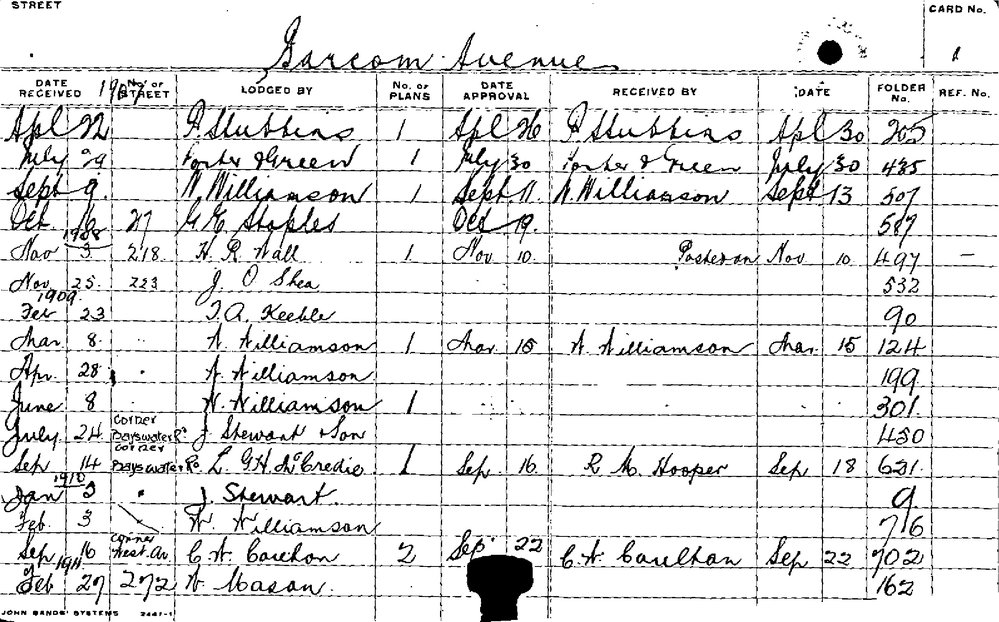 STREET
CARD No.
Garcom Avenue
1
DATE RECEIVED No. OF STREET LODGED BY No. OF PLANS DATE APPROVAL RECEIVED BY DATE FOLDER No. REF. No.
1907
Apl 22 P. Stubbins 1 Apl 26 P. Stubbins Apl 30 205
July 29 & Green 1 July 30 & Green July 30 435
Sept 9. W. Williamson 1 Sept. 11. W. Williamson Sept 13 507
Oct. 16 27 G. E. Staples Oct 19. 587
1908
Nov 3 218 H. R. Wall 1 Nov. 10. Nov 10 497 –
Nov 25. 223 J. O Shea 532
1909
Feb 23 T. A. Keeble 90
Mar 8. W. Williamson 1 Mar. 15 W Williamson Mar. 15 124
Apr. 28 W. Williamson 199
June 8 W. Williamson 1 301
July 24 corner Bayswater Rd J Stewart & Son 450
Sep 14 corner Bayswater Rd L. G. H. McCredie 1 Sep. 16. R. M. Hooper Sep 18 621
1910
Jan 3 J. Stewart. 9
Feb. 3 W. Williamson 76
Sep 16 corner West. Av. C. W. Caulton 2 Sep 22 C. W. Caulton Sep 22 702
1911
Feb 27 272 W Mason. 162
JOHN SANDS' SYSTEMS 2447-1